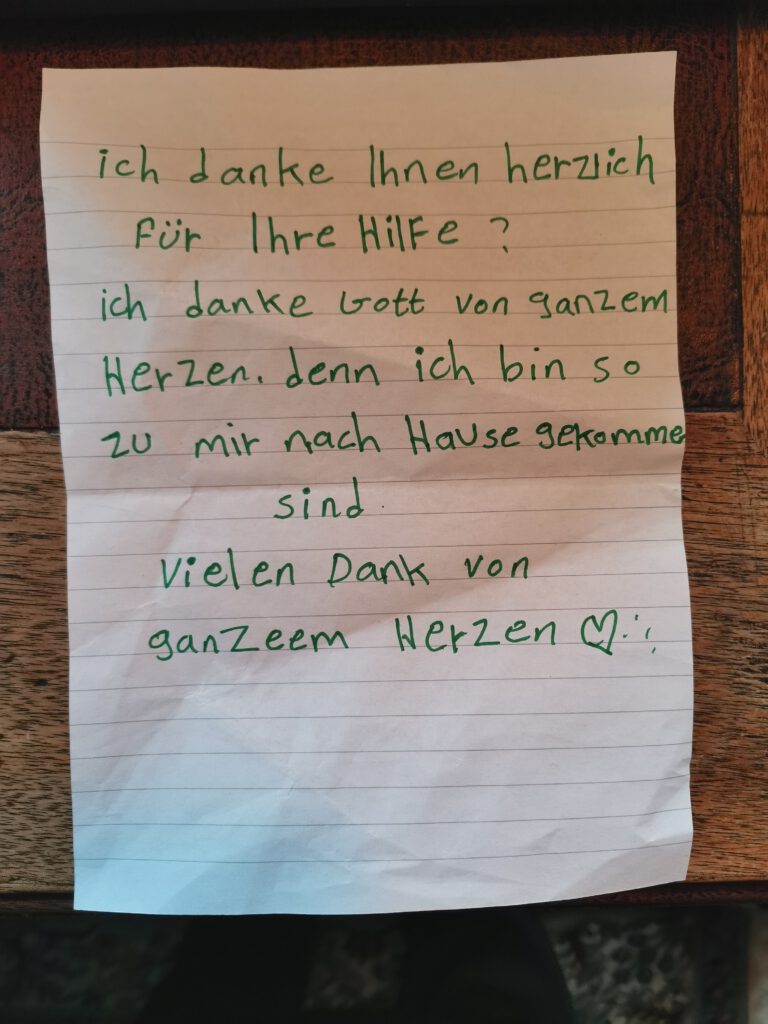 ich danke Ihnen herzlich
Für Ihre HilFe ?
ich danke Gott von ganzem
Herzen. denn ich bin so
zu mir nach Hause gekomme
sind.
Vielen Dank von
ganzeem Herzen ♡